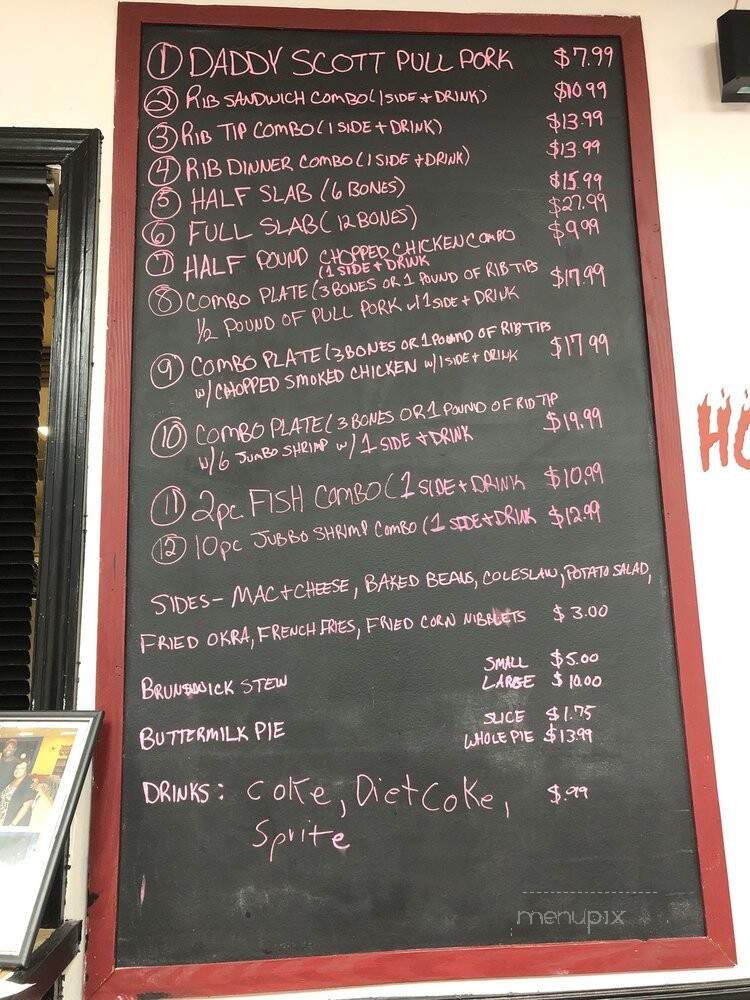 ① DADDY SCOTT PULL PORK $7.99
② RIB SANDWICH COMBO (1 SIDE + DRINK) $10.99
③ RIB TIP COMBO (1 SIDE + DRINK) $13.99
④ RIB DINNER COMBO (1 SIDE + DRINK) $13.99
⑤ HALF SLAB (6 BONES) $15.99
⑥ FULL SLAB (12 BONES) $27.99
⑦ HALF POUND CHOPPED CHICKEN COMBO $9.99
(1 SIDE + DRINK
⑧ COMBO PLATE (3 BONES OR 1 POUND OF RIB TIPS $17.99
1/2 POUND OF PULL PORK w/ 1 SIDE + DRINK
⑨ COMBO PLATE (3 BONES OR 1 POUND OF RIB TIPS $17.99
w/ CHOPPED SMOKED CHICKEN w/ 1 SIDE + DRINK
⑩ COMBO PLATE (3 BONES OR 1 POUND OF RIB TIP $19.99
w/ 6 JUMBO SHRIMP w/ 1 SIDE + DRINK
⑪ 2pc FISH COMBO (1 SIDE + DRINK $10.99
⑫ 10pc JUBBO SHRIMP COMBO (1 SIDE + DRINK $12.99
SIDES - MAC + CHEESE, BAKED BEANS, COLESLAW, POTATO SALAD,
FRIED OKRA, FRENCH FRIES, FRIED CORN NIBBLETS $3.00
SMALL $5.00
BRUNSWICK STEW LARGE $10.00
SLICE $1.75
BUTTERMILK PIE WHOLE PIE $13.99
DRINKS: Coke, Diet Coke, $.99
Sprite
HO
menupix